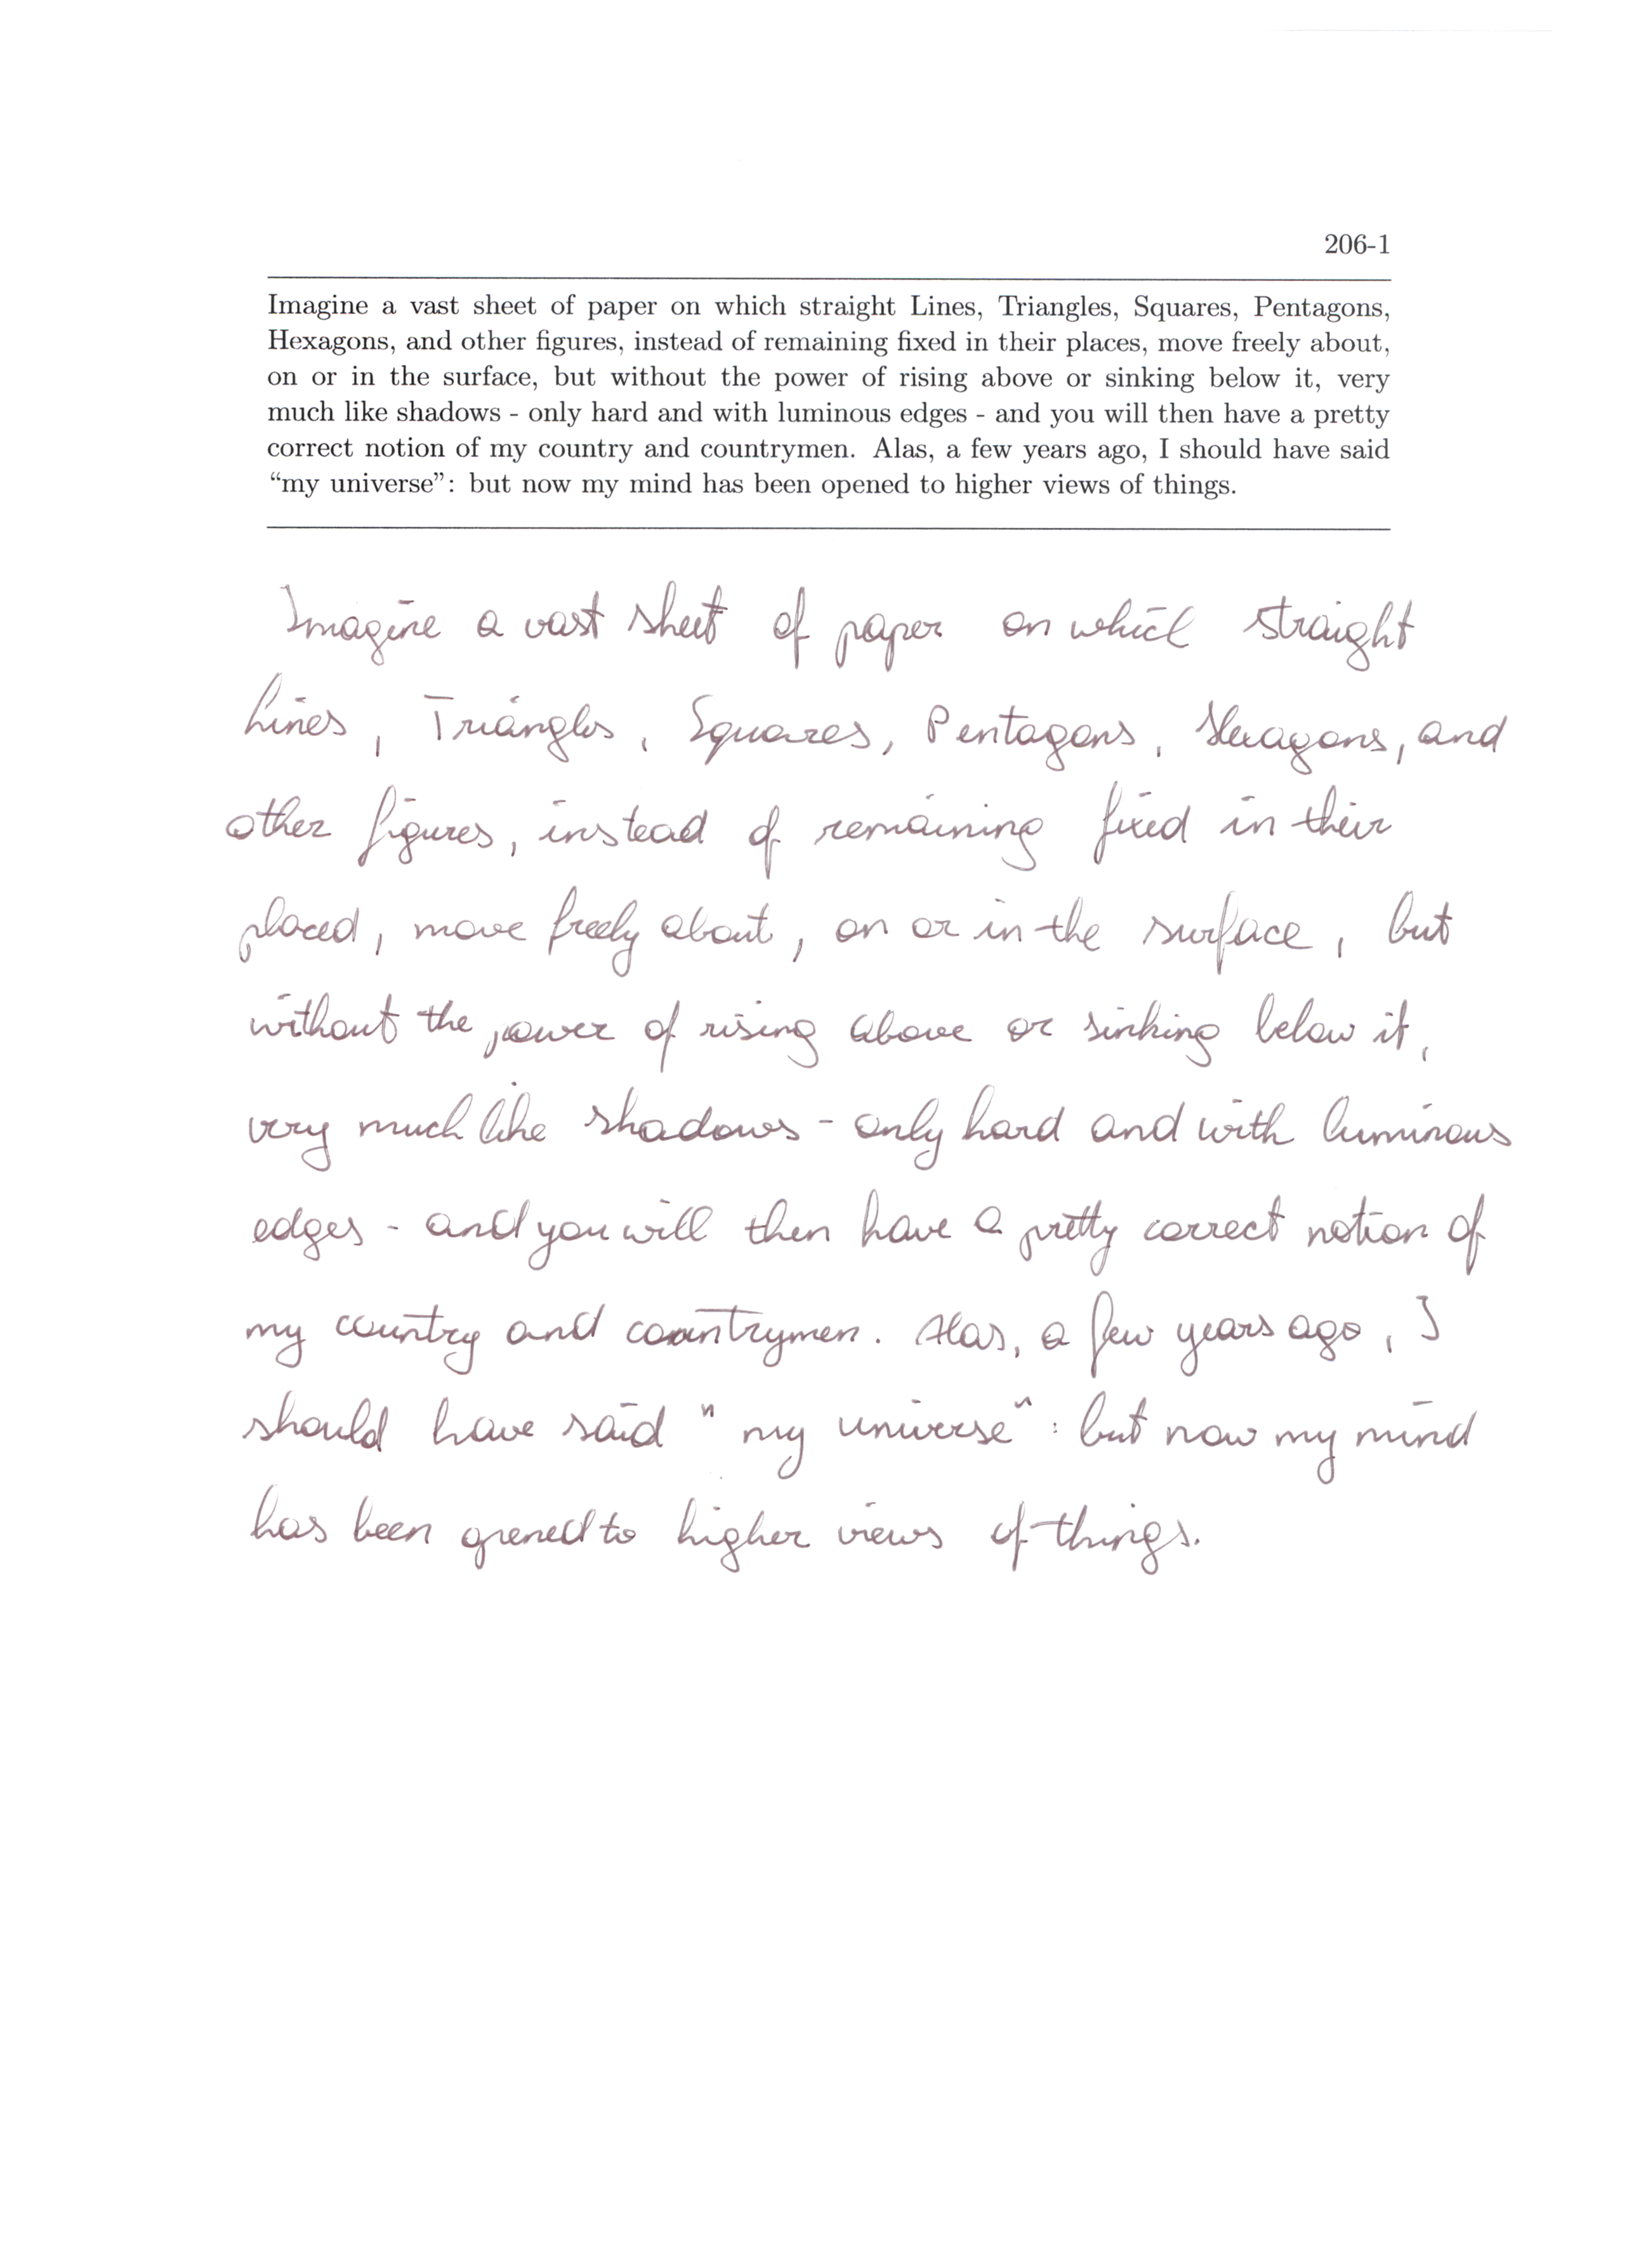 206-1
Imagine a vast sheet of paper on which straight Lines, Triangles, Squares, Pentagons,
Hexagons, and other figures, instead of remaining fixed in their places, move freely about,
on or in the surface, but without the power of rising above or sinking below it, very
much like shadows - only hard and with luminous edges - and you will then have a pretty
correct notion of my country and countrymen. Alas, a few years ago, I should have said
“my universe”: but now my mind has been opened to higher views of things.
Imagine a vast sheet of paper on which straight
Lines, Triangles, Squares, Pentagons, Hexagons, and
other figures, instead of remaining fixed in their
placed, move freely about, on or in the surface, but
without the power of rising above or sinking below it,
very much like shadows - only hard and with luminous
edges - and you will then have a pretty correct notion of
my country and countrymen. Alas, a few years ago, I
should have said "my universe": but now my mind
has been opened to higher views of things.